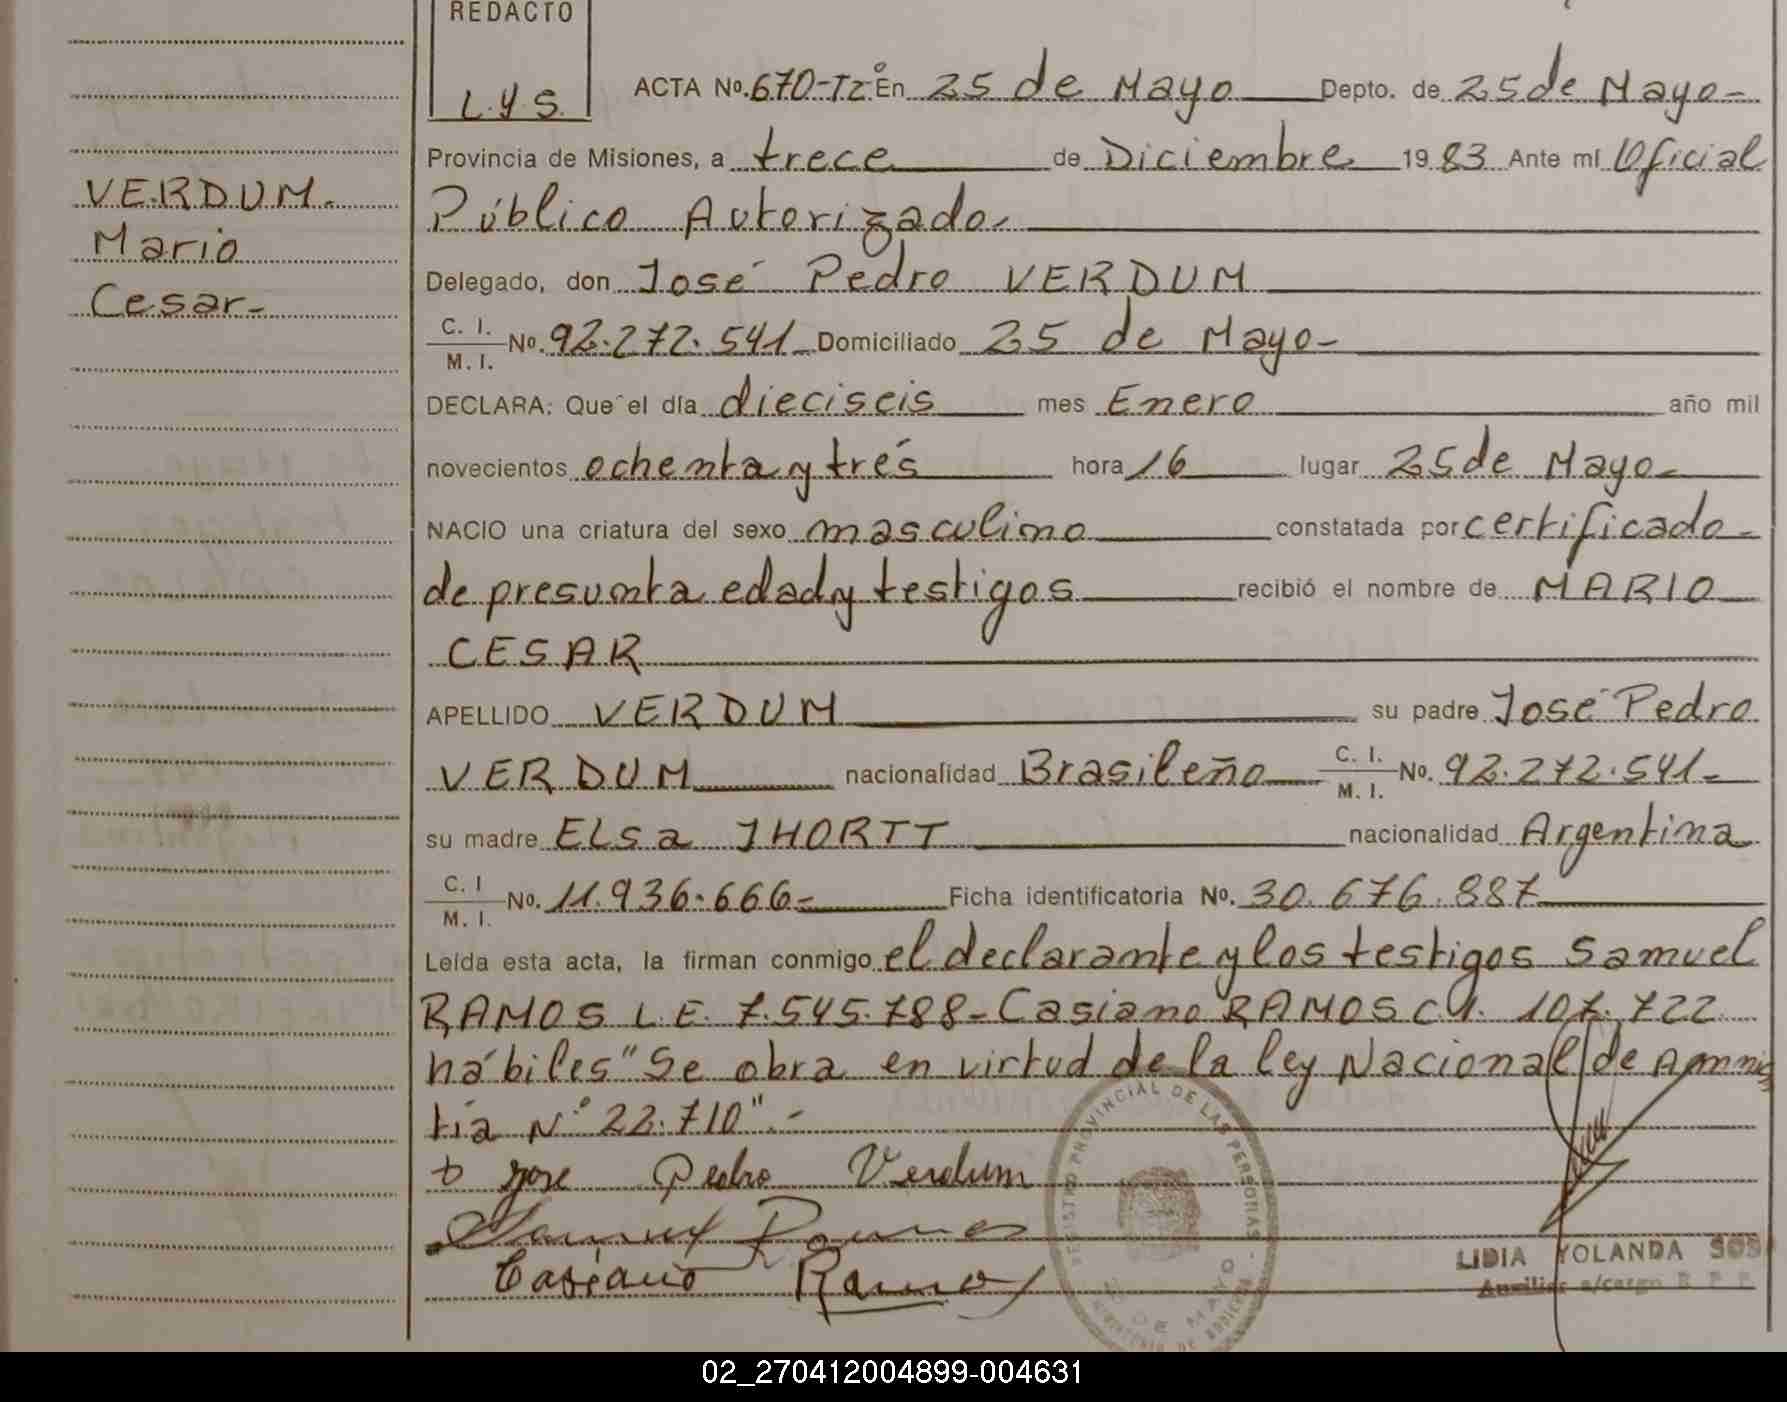 REDACTO
L.Y.S.
ACTA No. 670-T2º En 25 de Mayo Depto. de 25 de Mayo-
Provincia de Misiones, a trece de Diciembre 19 83 Ante mí Oficial
Público Autorizado-
Delegado, don José Pedro VERDUM
C. I.
M. I. No. 92.272.541- Domiciliado 25 de Mayo-
DECLARA: Que el día dieciseis mes Enero año mil
novecientos ochenta y trés hora 16 lugar 25 de Mayo-
NACIO una criatura del sexo masculino constatada por certificado-
de presunta edad y testigos recibió el nombre de MARIO
CESAR
APELLIDO VERDUM su padre José Pedro
VERDUM nacionalidad Brasileño C. I. M. I. No. 92.272.541-
su madre ELSa JHORTT nacionalidad Argentina
C. I M. I. No. 11.936.666- Ficha identificatoria No. 30.676.887
Leída esta acta, la firman conmigo el declarante y los testigos Samuel
RAMOS L.E. 7.545.788- Casiano RAMOS C.I. 107.722
hábiles "Se obra en virtud de la ley Nacional de Amnis
tía Nº 22.710".-
Jose Pedro Verdum
Samuel Ramos
Casiano Ramos
VERDUM-
Mario
Cesar-
REGISTRO PROVINCIAL DE LAS PERSONAS
25 DE MAYO
LIDIA YOLANDA SOS
Auxiliar a/cargo R P P
02_270412004899-004631